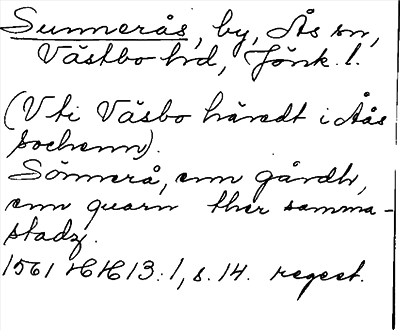 Sunnerås, by, Ås sn,
Västbo hd, Jönk. l.
(Vti Väsbo häredt i Åås
sochenn).
Sönnerå, enn gårdh,
enn quarn ther samma-
stadz.
1561 HH 13:1, s. 14. regest.